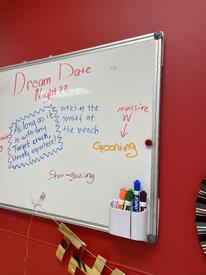 Dream Date
Night??
As long as it
is with my
Target crush,
literally anywhere!
watching the
sunset at
the beach
massive
Gooning
Star-gazing
EXPO